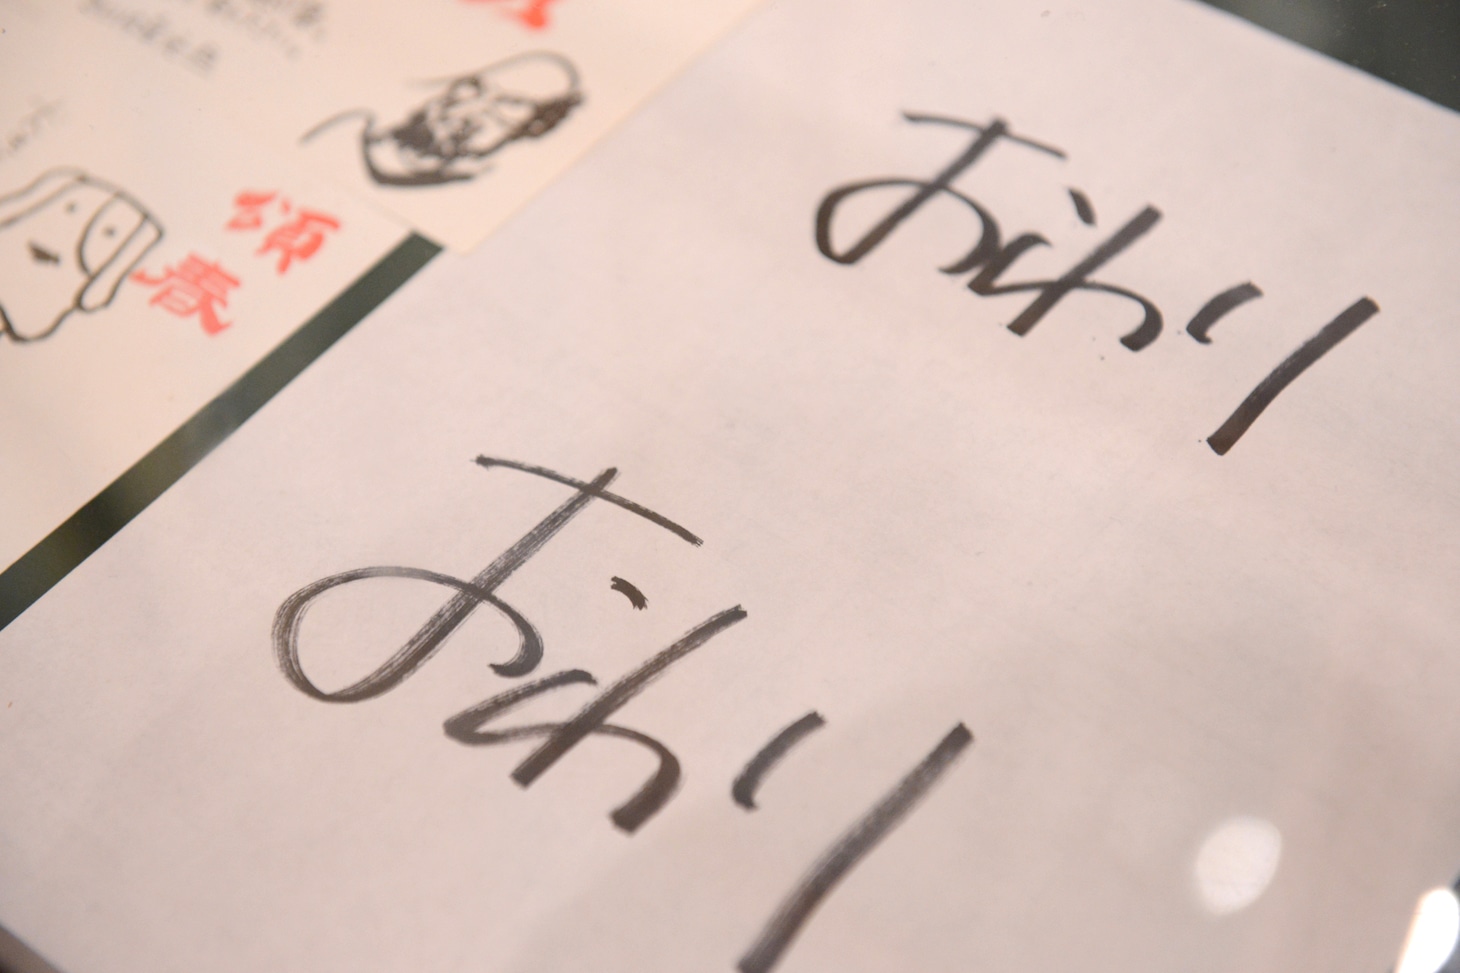 おわり
おわり
頌春